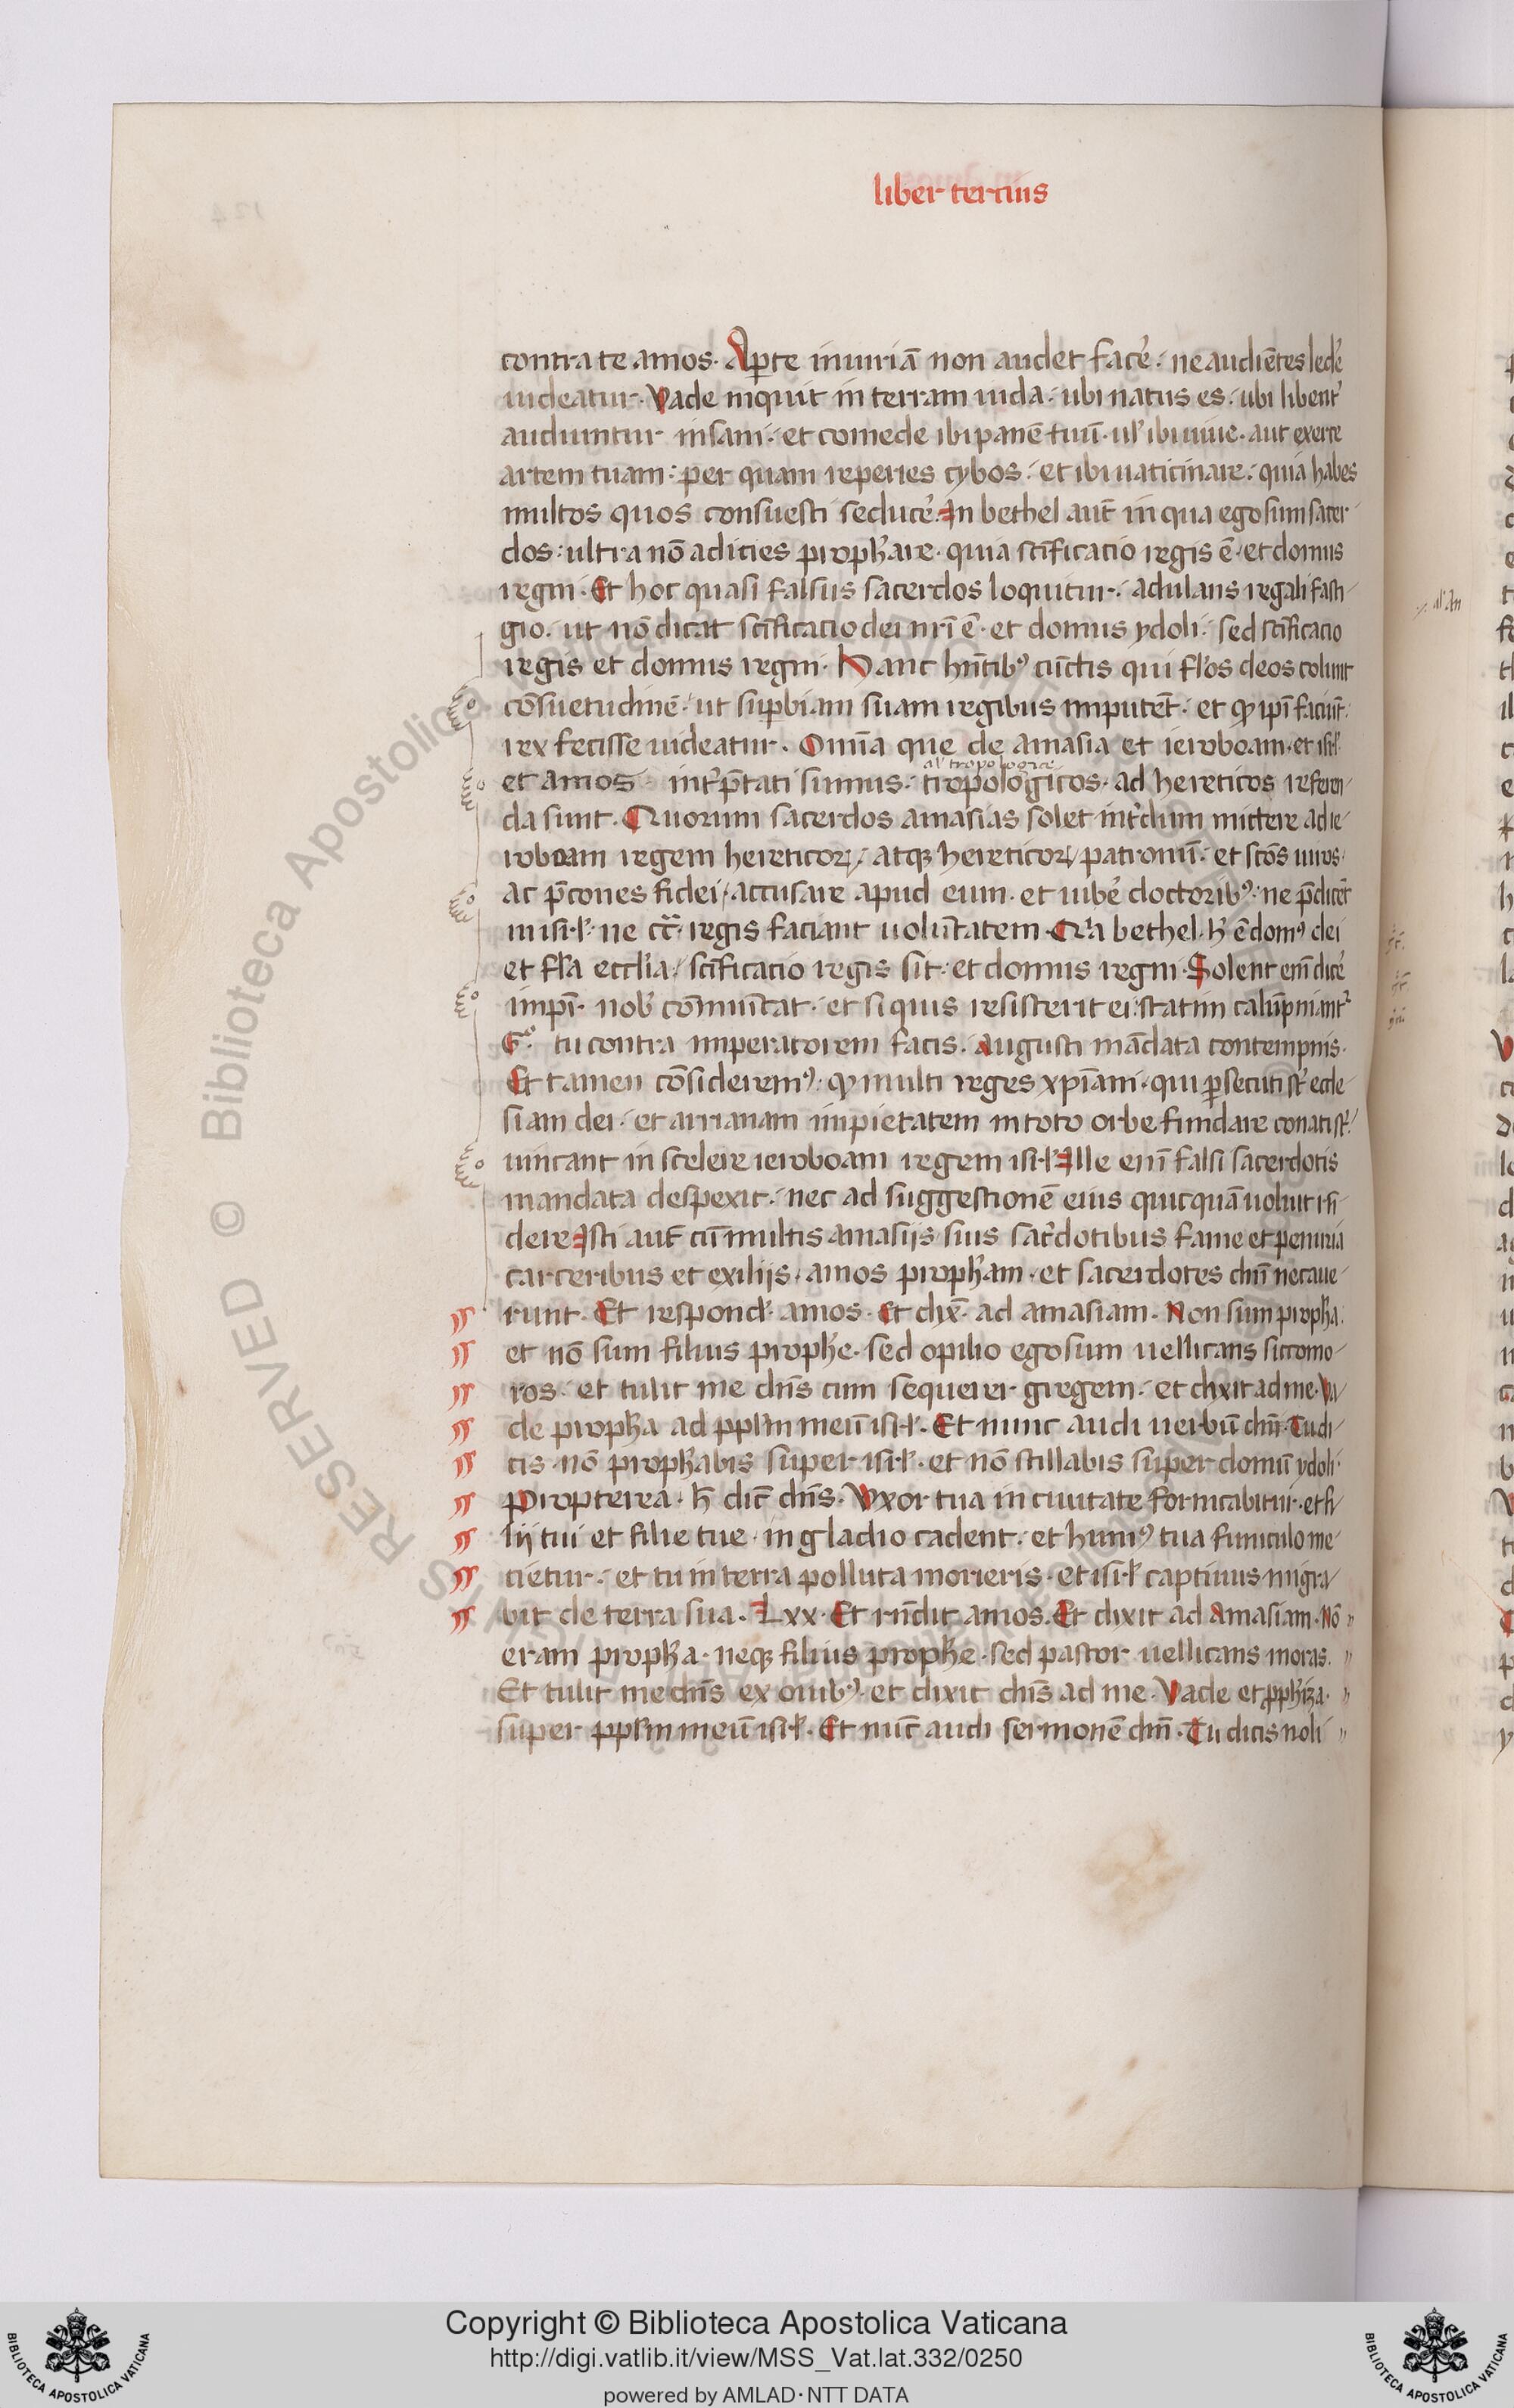 liber tercius
contra te amos. Aꝑte iniuriā non audet facẻ. ne audiētes ledẻ
uideatur. Vade inquit in terram iuda. ubi natus es. ubi libent᷑
audiuntur insani. et comede ibi panē tuū. ul̓ ibi uiue. aut exerce
artem tuam: per quam reperies cybos. et ibi uaticinare. quia habes
multos quos consuesti seducẻ. In bethel aut̄ in qua ego sum sacer
dos: ultra nō adicies proph̓are. quia sc̄ificacio regis ē. et domus
regni. Et hoc quasi falsus sacerdos loquitur. adulans regali fasti
gio. ut nō dicat sc̄ificacio dei nr̄i ē. et domus ydoli. sed sc̄ificacio
regis et domus regni. Hanc hn̄tibꝰ cūctis qui fl̓os deos colunt
cōsuetudinē. ut suꝑbiam suam regibus imputēt. et ꝙ ip̄i faciūt.
rex fecisse uideatur. Omīa que de amasia et ieroboam. et isrl̓
al̓ tropologice
et amos int̓p̄tati sumus. tropologicos. ad hereticos referen
da sunt. Quorum sacerdos amasias solet int̓dum mittere ad ie
roboam regem hereticoꝝ. atqꝫ hereticoꝝ patronū. et sc̄os uiros.
ac p̄cones fidei accusare apud eum. et iubẻ doctoribꝰ. ne p̄dicēt
in isrl̓. ne cc̄. regis faciant uolūtatem. Cū bethel. h̓ ē domꝰ dei
et fl̓a eccl̓ia. sc̄ificacio regis sit. et domus regni. Solent em̄ dicẻ
imp̄r. nob̓ cōmūicat. et si quis resisterit ei. statim calūpniant᷑
Gͦ. tu contra imperatorem facis. Augusti mādata contempnis.
Et tamen cōsideremꝰ. ꝙ multi reges xp̄iani. qui ꝑsecuti st̓ eccle
siam dei. et arrianam impietatem in toto orbe fundare conati st̓.
uincant in scelere ieroboam regem isrl̓. Ille em̄ falsi sacerdotis
mandata despexit. nec ad suggestionē eius quicquā uoluit rn̄
dere. Isti aut̄ cū multis amasijs suis sac̓dotibus fame et penuria
carceribus et exilijs. amos proph̓am. et sacerdotes dn̄i necaue
runt. Et respond̓. amos. Et dix̄. ad amasiam. Non sum proph̓a.
et nō sum filius proph̓e. sed opilio ego sum uellicans siccomo
ros. et tulit me dn̄s cum sequerer gregem. et dixit ad me. Va
de proph̓a ad ppl̓m meū isrl̓. Et nunc audi uerbū dn̄i. Tu di
cis nō proph̓abis super isrl̓. et nō stillabis super domū ydoli.
Propterea. h̄ dic̄ dn̄s. Vxor tua in ciuitate fornicabitur. et fi
lij tui et filie tue. in gladio cadent. et humꝰ tua funiculo me
cietur. et tu in terra polluta morieris. et isrl̓ captiuus migra
bit de terra sua. Lxx. Et rn̄dit amos. Et dixit ad Amasiam. Nō
eram proph̓a. neqꝫ filius proph̓e. sed pastor uellicans moras.
Et tulit me dn̄s ex ouibꝰ. et dixit dn̄s ad me. Vade et ꝓph̓iza.
super ppl̓m meū isrl̓. Et nūc audi sermonē dn̄i. Tu dicis noli
Copyright © Biblioteca Apostolica Vaticana
http://digi.vatlib.it/view/MSS_Vat.lat.332/0250
powered by AMLAD·NTT DATA